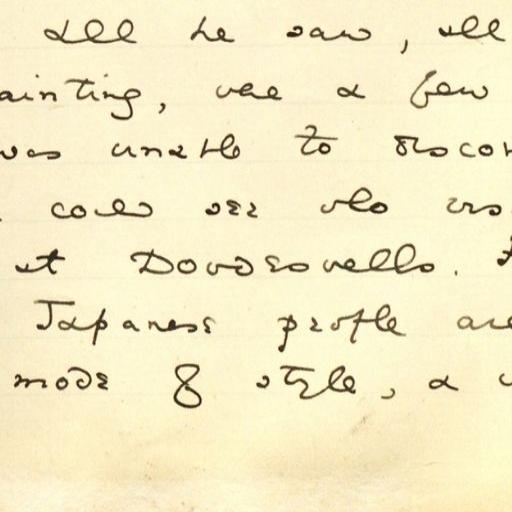 All he saw, all
ainting, were a few
was unable to discov
could see who
at Dowdeswells.
Japanese people are
mode of style, a